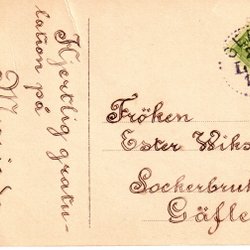 Hjertlig gratu-
lation på
Fröken
Ester Wiks
Sockerbruk
Gäfle